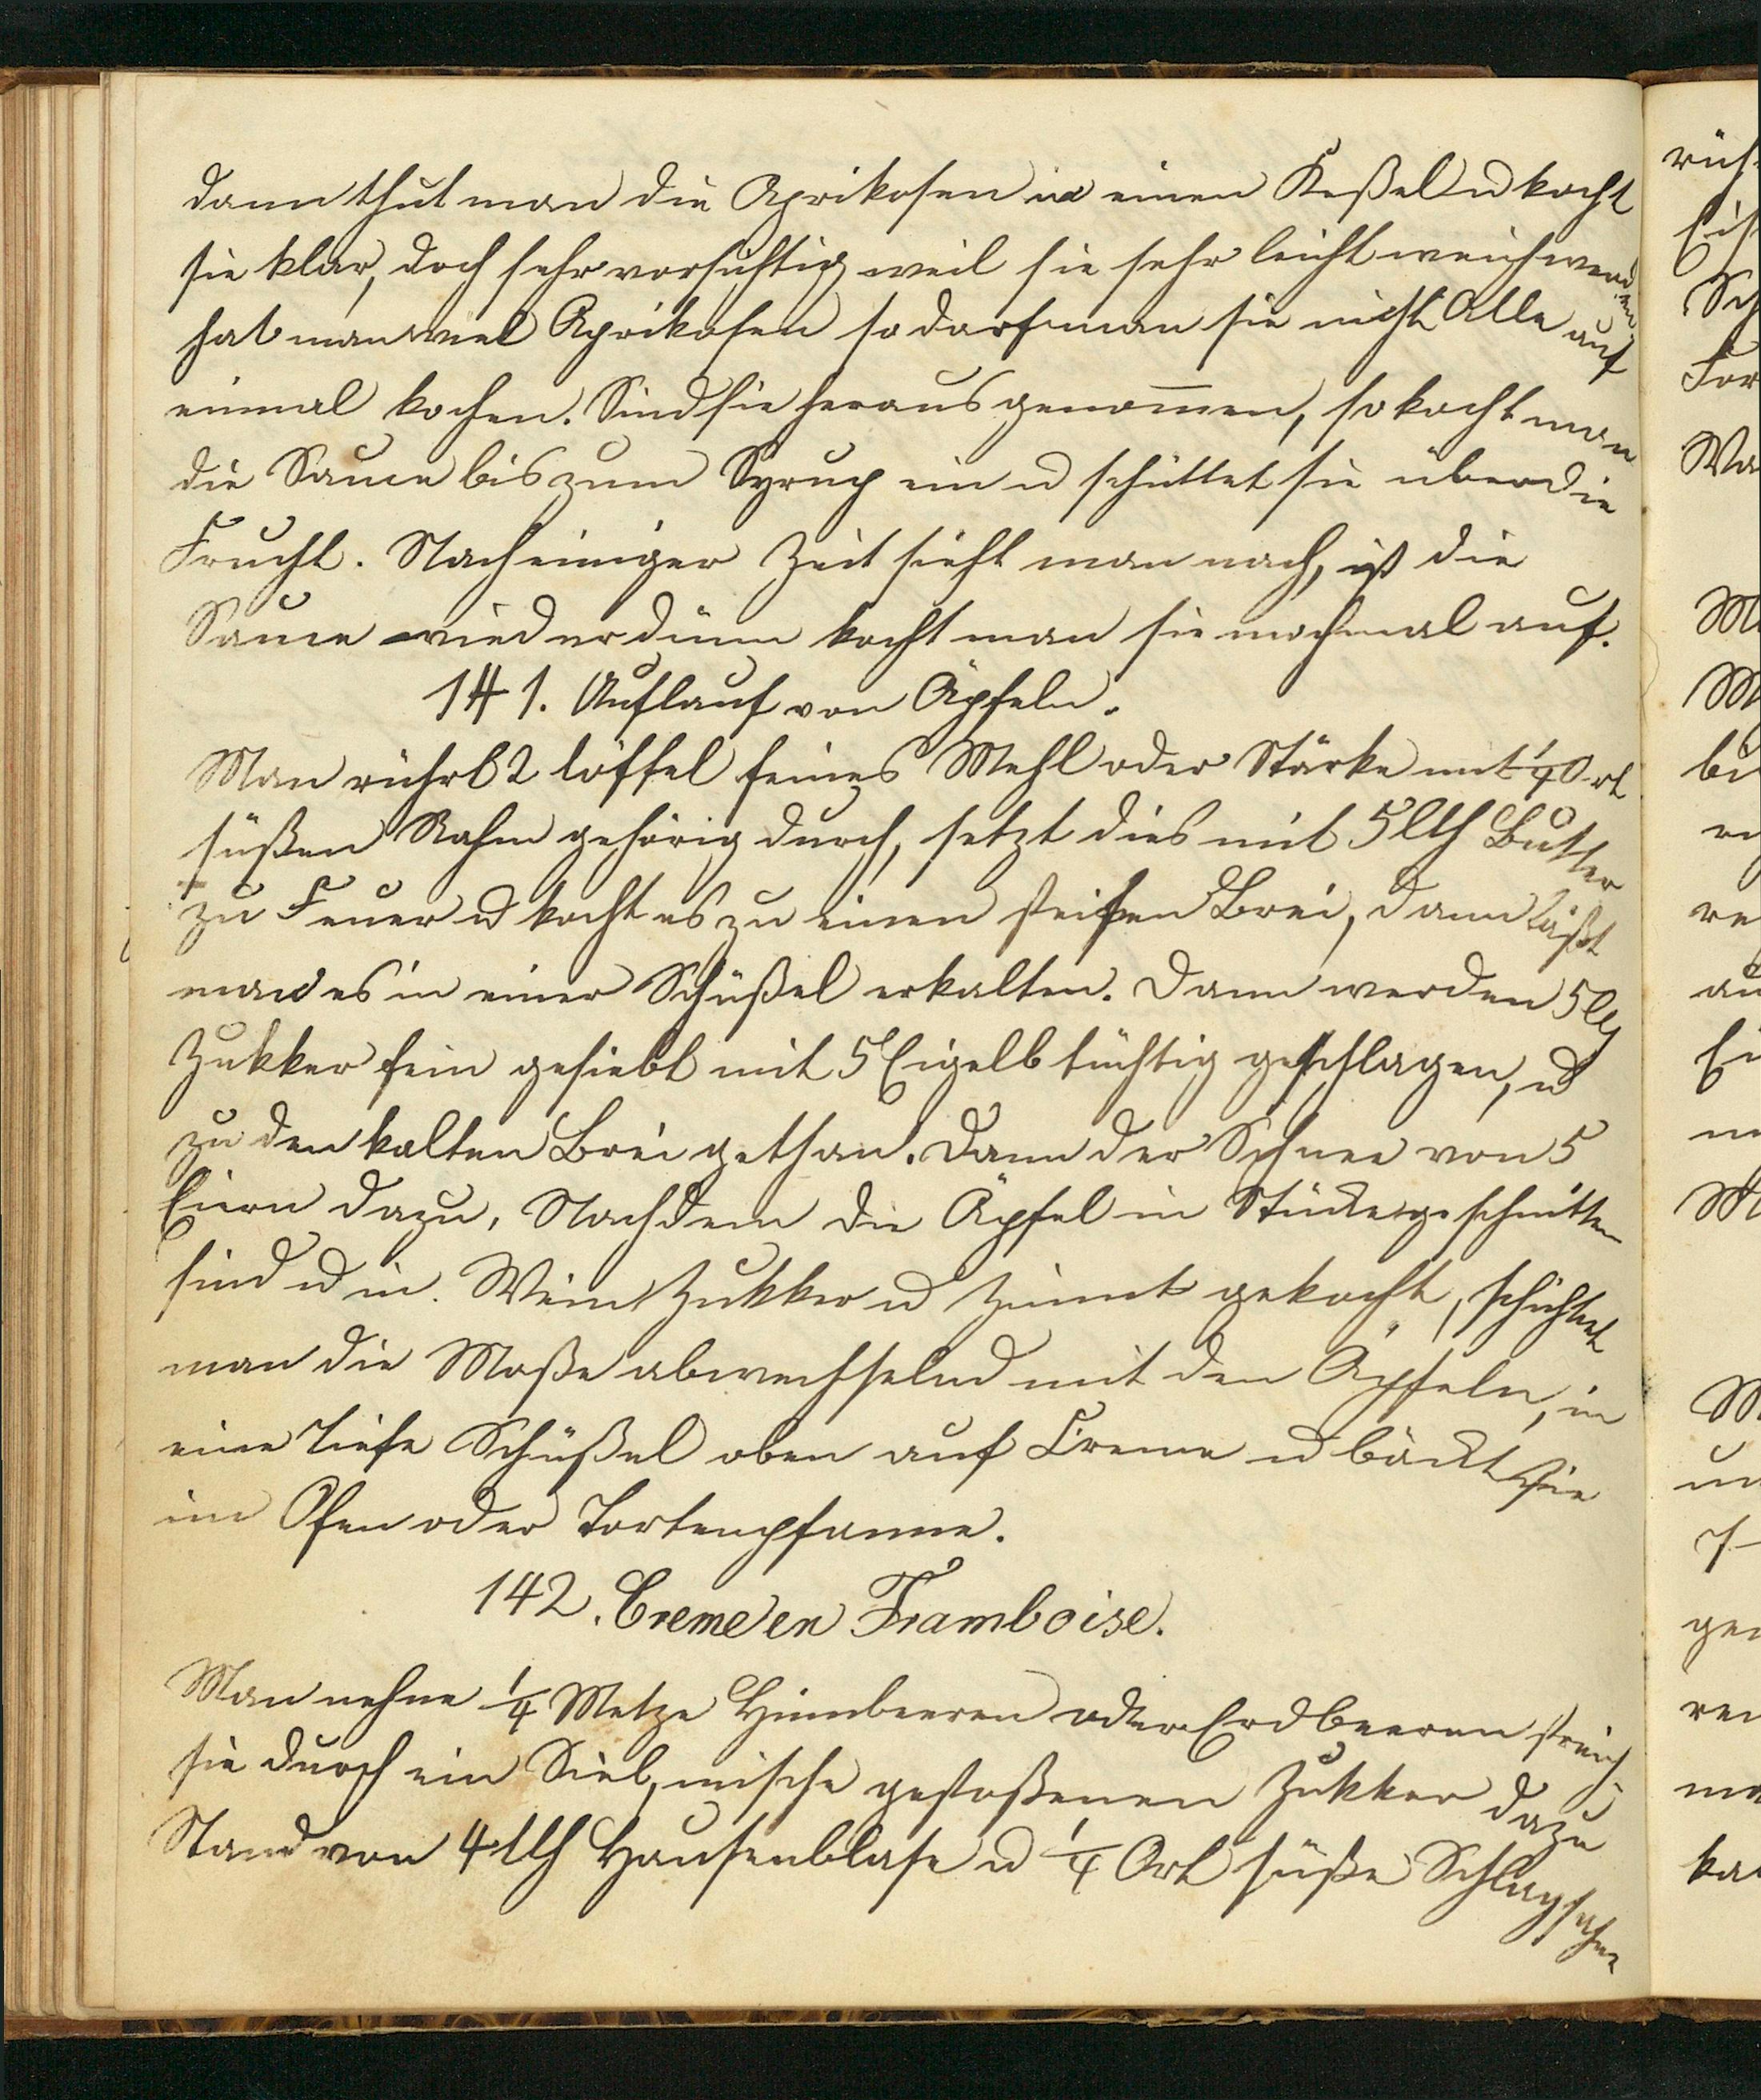 dann thut man die Aprikosen in einen Keßel u kocht
sie klar, doch sehr vorsichtig weil sie sehr leicht weich werden
hat man viel Aprikosen so darf man sie nicht Alle auf
einmal kochen. Sind sie herausgenom̅en, so kocht man
die Sauce bis zum Syrup ein u schüttet sie über die
Frucht. Nach einiger Zeit sieht man nach, ist die
Sauce wieder dünn kocht man sie nochmal auf.
141. Auflauf von Äpfeln.
Man rührt 2 löffel feines Mehl oder Stärke mit ¼ Ort
süßen Rahm gehörig durch, setzt dies mit 5 lth Butter
zu Feuer u kocht es zu einen steifen Brei, dann läßt
man es in einer Schüßel erkalten. Dann werden 5 lth
Zukker fein gesiebt mit 5 Eigelb tüchtig geschlagen, u
zu den kalten Brei gethan. Dann der Schnee von 5
Eiern dazu, Nachdem die Äpfel in Stücke geschnitten
sind u in Wein Zukker u Zimmt gekocht, schichtet
man die Maße abwechselnd mit den Äpfeln, in
eine tiefe Schüßel oben auf Creme u bäckt sie
im Ofen oder Tortenpfanne.
142. Creme en Framboise.
Man nehme ¼ Metze Himbeeren oder Erdbeeren streich
sie durch ein Sieb, mische gestoßenen Zukker dazu
Stand von 4 lth Hausenblase u ¼ Ort süße Schlagsahne